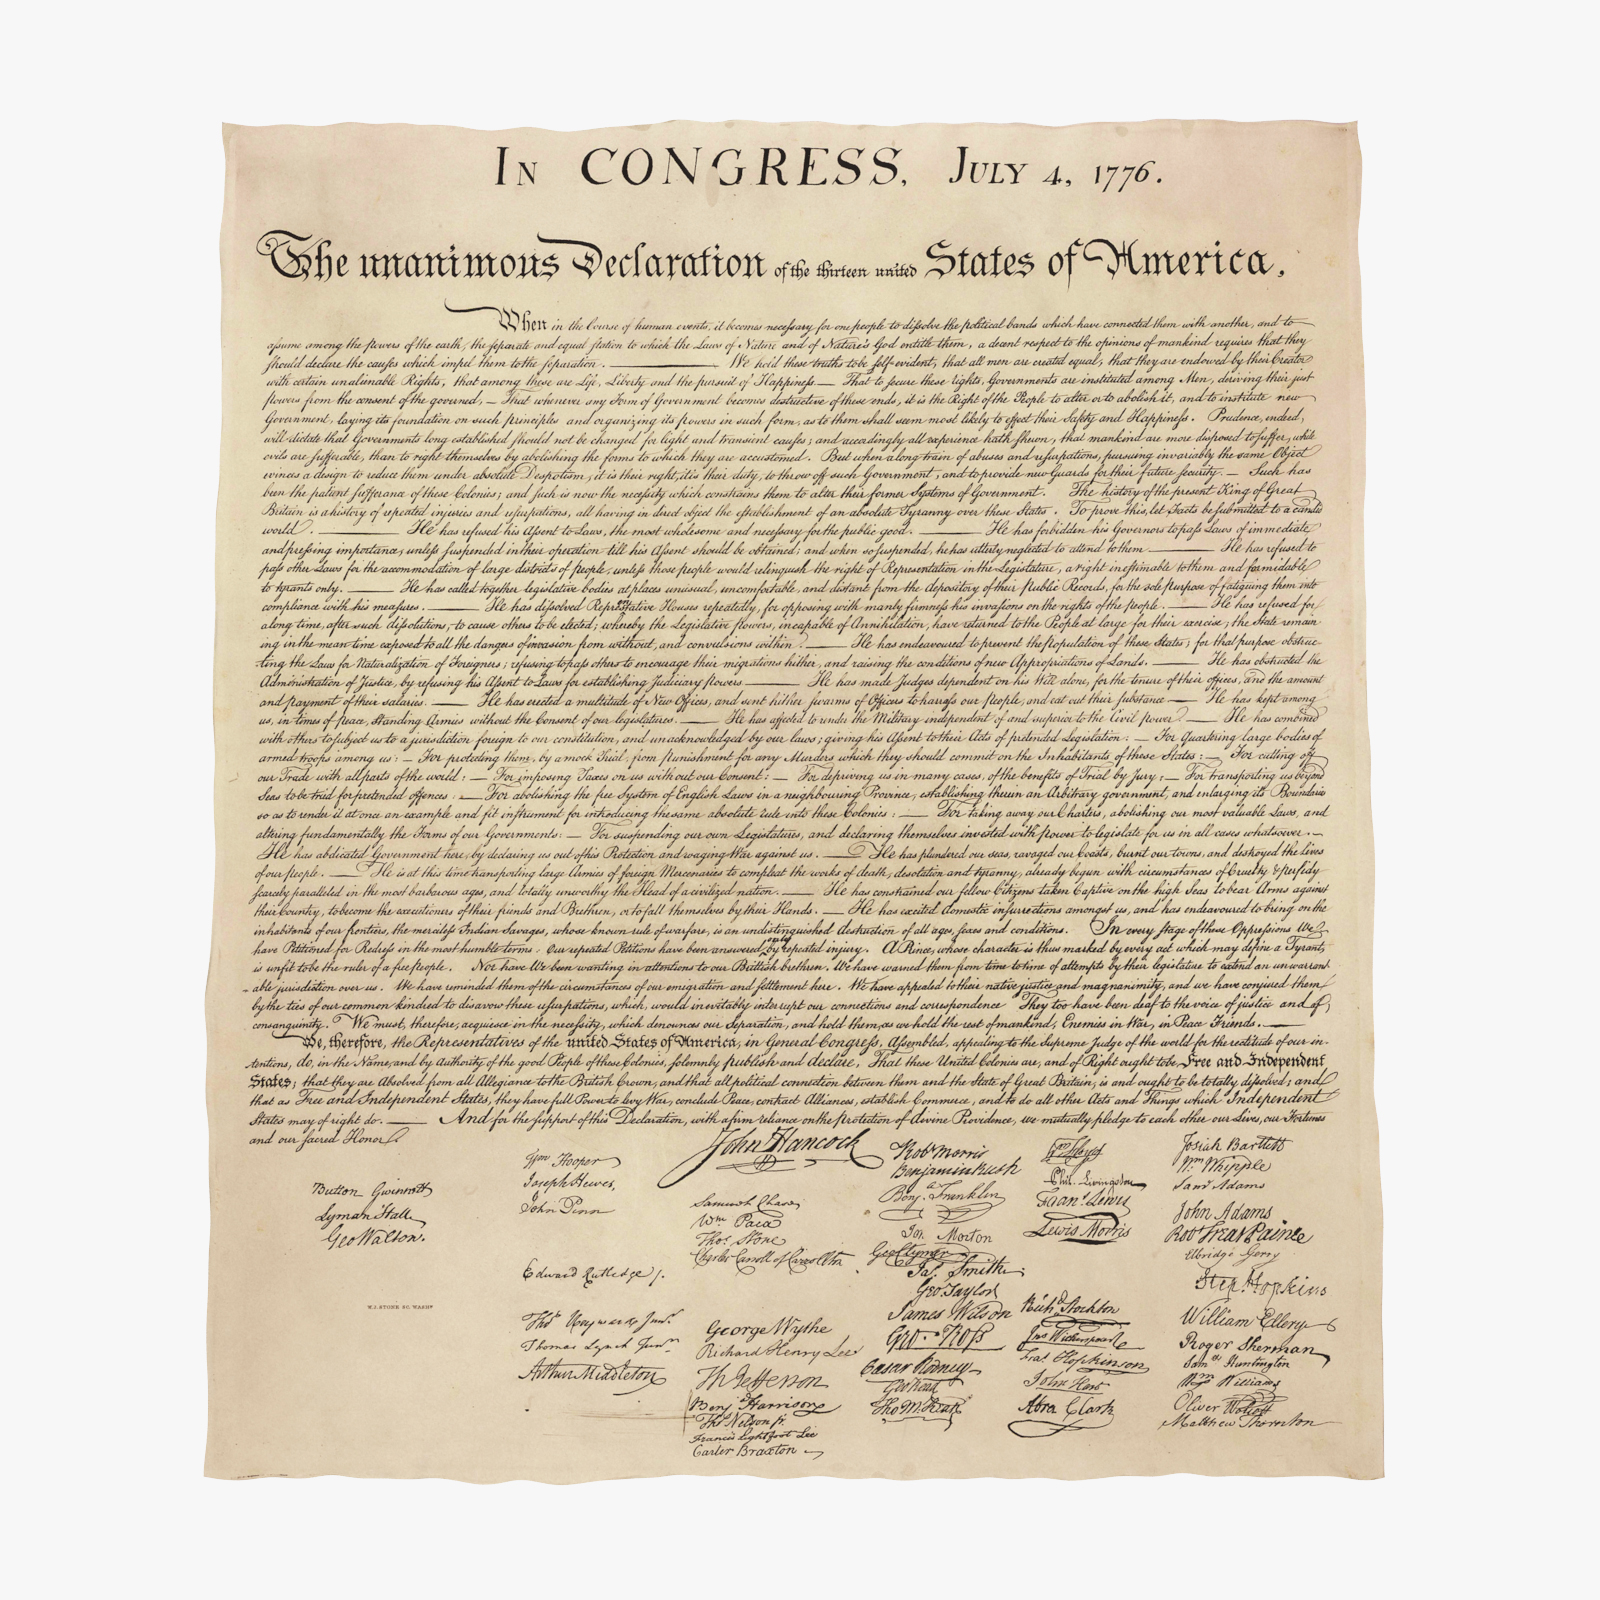 In CONGRESS, July 4, 1776.
The unanimous Declaration of the thirteen united States of America,
When in the Course of human events, it becomes necessary for one people to dissolve the political bands which have connected them with another, and to
assume among the powers of the earth, the separate and equal station to which the Laws of Nature and of Nature's God entitle them, a decent respect to the opinions of mankind requires that they
should declare the causes which impel them to the separation. — We hold these truths to be self-evident, that all men are created equal, that they are endowed by their Creator
with certain unalienable Rights, that among these are Life, Liberty and the pursuit of Happiness.— That to secure these rights, Governments are instituted among Men, deriving their just
powers from the consent of the governed, — That whenever any Form of Government becomes destructive of these ends, it is the Right of the People to alter or to abolish it, and to institute new
Government, laying its foundation on such principles and organizing its powers in such form, as to them shall seem most likely to effect their Safety and Happiness. Prudence, indeed,
will dictate that Governments long established should not be changed for light and transient causes; and accordingly all experience hath shewn, that mankind are more disposed to suffer, while
evils are sufferable, than to right themselves by abolishing the forms to which they are accustomed. But when a long train of abuses and usurpations, pursuing invariably the same Object
evinces a design to reduce them under absolute Despotism, it is their right, it is their duty, to throw off such Government, and to provide new Guards for their future security. — Such has
been the patient sufferance of these Colonies; and such is now the necessity which constrains them to alter their former Systems of Government. The history of the present King of Great
Britain is a history of repeated injuries and usurpations, all having in direct object the establishment of an absolute Tyranny over these States. To prove this, let Facts be submitted to a candid
world. — He has refused his Assent to Laws, the most wholesome and necessary for the public good. — He has forbidden his Governors to pass Laws of immediate
and pressing importance, unless suspended in their operation till his Assent should be obtained; and when so suspended, he has utterly neglected to attend to them. — He has refused to
pass other Laws for the accommodation of large districts of people, unless those people would relinquish the right of Representation in the Legislature, a right inestimable to them and formidable
to tyrants only. — He has called together legislative bodies at places unusual, uncomfortable, and distant from the depository of their Public Records, for the sole purpose of fatiguing them into
compliance with his measures. — He has dissolved Representative Houses repeatedly, for opposing with manly firmness his invasions on the rights of the people. — He has refused for
a long time, after such dissolutions, to cause others to be elected; whereby the Legislative powers, incapable of Annihilation, have returned to the People at large for their exercise; the State remain
ing in the mean time exposed to all the dangers of invasion from without, and convulsions within. — He has endeavoured to prevent the population of these States; for that purpose obstruc-
ting the Laws for Naturalization of Foreigners; refusing to pass others to encourage their migrations hither, and raising the conditions of new Appropriations of Lands. — He has obstructed the
Administration of Justice, by refusing his Assent to Laws for establishing Judiciary powers. — He has made Judges dependent on his Will alone, for the tenure of their offices, and the amount
and payment of their salaries. — He has erected a multitude of New Offices, and sent hither swarms of Officers to harrass our people, and eat out their substance. — He has kept among
us, in times of peace, Standing Armies without the Consent of our legislatures. — He has affected to render the Military independent of and superior to the Civil power. — He has combined
with others to subject us to a jurisdiction foreign to our constitution, and unacknowledged by our laws; giving his Assent to their Acts of pretended Legislation: — For Quartering large bodies of
armed troops among us: — For protecting them, by a mock Trial, from punishment for any Murders which they should commit on the Inhabitants of these States: — For cutting off
our Trade with all parts of the world: — For imposing Taxes on us without our Consent: — For depriving us in many cases, of the benefits of Trial by Jury: — For transporting us beyond
Seas to be tried for pretended offences. — For abolishing the free System of English Laws in a neighbouring Province, establishing therein an Arbitrary government, and enlarging its Boundaries
so as to render it at once an example and fit instrument for introducing the same absolute rule into these Colonies: — For taking away our Charters, abolishing our most valuable Laws, and
altering fundamentally the Forms of our Governments: — For suspending our own Legislatures, and declaring themselves invested with power to legislate for us in all cases whatsoever. —
He has abdicated Government here, by declaring us out of his Protection and waging War against us. — He has plundered our seas, ravaged our Coasts, burnt our towns, and destroyed the lives
of our people. — He is at this time transporting large Armies of foreign Mercenaries to compleat the works of death, desolation and tyranny, already begun with circumstances of Cruelty & perfidy
scarcely paralleled in the most barbarous ages, and totally unworthy the Head of a civilized nation. — He has constrained our fellow Citizens taken Captive on the high Seas to bear Arms against
their Country, to become the executioners of their friends and Brethren, or to fall themselves by their Hands. — He has excited domestic insurrections amongst us, and has endeavoured to bring on the
inhabitants of our frontiers, the merciless Indian Savages, whose known rule of warfare, is an undistinguished destruction of all ages, sexes and conditions. In every stage of these Oppressions We
have Petitioned for Redress in the most humble terms: Our repeated Petitions have been answered only by repeated injury. A Prince, whose character is thus marked by every act which may define a Tyrant,
is unfit to be the ruler of a free people. Nor have We been wanting in attentions to our Brittish brethren. We have warned them from time to time of attempts by their legislature to extend an unwarrant-
able jurisdiction over us. We have reminded them of the circumstances of our emigration and settlement here. We have appealed to their native justice and magnanimity, and we have conjured them
by the ties of our common kindred to disavow these usurpations, which, would inevitably interrupt our connections and correspondence They too have been deaf to the voice of justice and of
consanguinity. We must, therefore, acquiesce in the necessity, which denounces our Separation, and hold them, as we hold the rest of mankind, Enemies in War, in Peace Friends. —
We, therefore, the Representatives of the united States of America, in General Congress, Assembled, appealing to the Supreme Judge of the world for the rectitude of our in-
tentions, do, in the Name, and by Authority of the good People of these Colonies, solemnly publish and declare, That these United Colonies are, and of Right ought to be Free and Independent
States; that they are Absolved from all Allegiance to the British Crown, and that all political connection between them and the State of Great Britain, is and ought to be totally dissolved; and
that as Free and Independent States, they have full Power to levy War, conclude Peace, contract Alliances, establish Commerce, and to do all other Acts and Things which Independent
States may of right do. — And for the support of this Declaration, with a firm reliance on the protection of divine Providence, we mutually pledge to each other our Lives, our Fortunes
and our sacred Honor.
Button Gwinnett
Lyman Hall
Geo Walton.
W.J. STONE SC. WASHN
Wm Hooper
Joseph Hewes,
John Penn
Edward Rutledge /.
Thos Heyward Junr.
Thomas Lynch Junr.
Arthur Middleton
John Hancock
Samuel Chase
Wm Paca
Thos Stone
Charles Carroll of Carrollton
George Wythe
Richard Henry Lee
Th Jefferson
Benj Harrison
Thos Nelson jr.
Francis Lightfoot Lee
Carter Braxton
Robt Morris
Benjamin Rush
Benja Franklin
John Morton
Geo Clymer
Jas. Smith
Geo. Taylor
James Wilson
Geo. Ross
Caesar Rodney
Geo Read
Tho M:Kean
Wm Floyd
Phil. Livingston
Frans. Lewis
Lewis Morris
Richd Stockton
Jno Witherspoon
Fras. Hopkinson
John Hart
Abra Clark
Josiah Bartlett
Wm Whipple
Saml Adams
John Adams
Robt Treat Paine
Elbridge Gerry
Step. Hopkins
William Ellery
Roger Sherman
Saml Huntington
Wm Williams
Oliver Wolcott
Matthew Thornton